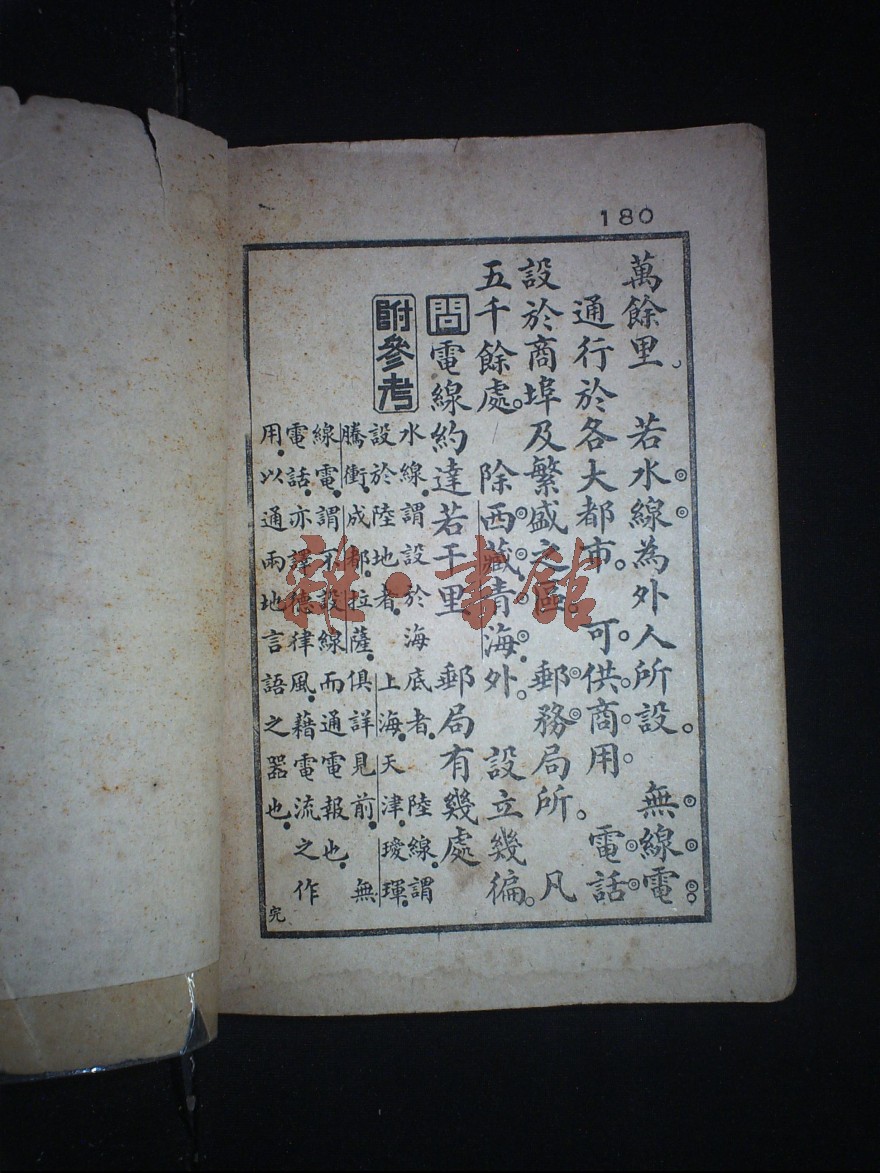 180
萬餘里。 若水線為外人所設。 無線電
通行於各大都市。 可供商用。 電話
設於商埠及繁盛之區。 郵務局所。 凡
五千餘處。 除西藏青海外。 設立幾徧。
問電線約達若干里 郵局有幾處
附參考
水線。謂設於海底者。 陸線。謂
設於陸地者。 上海。天津。璦琿。
騰衝。成都。拉薩。俱詳見前。 無
線電。謂不設線而通電報也。
電話。亦譯德律風。藉電流之作
用。以通兩地言語之器也。
完
雜·書館